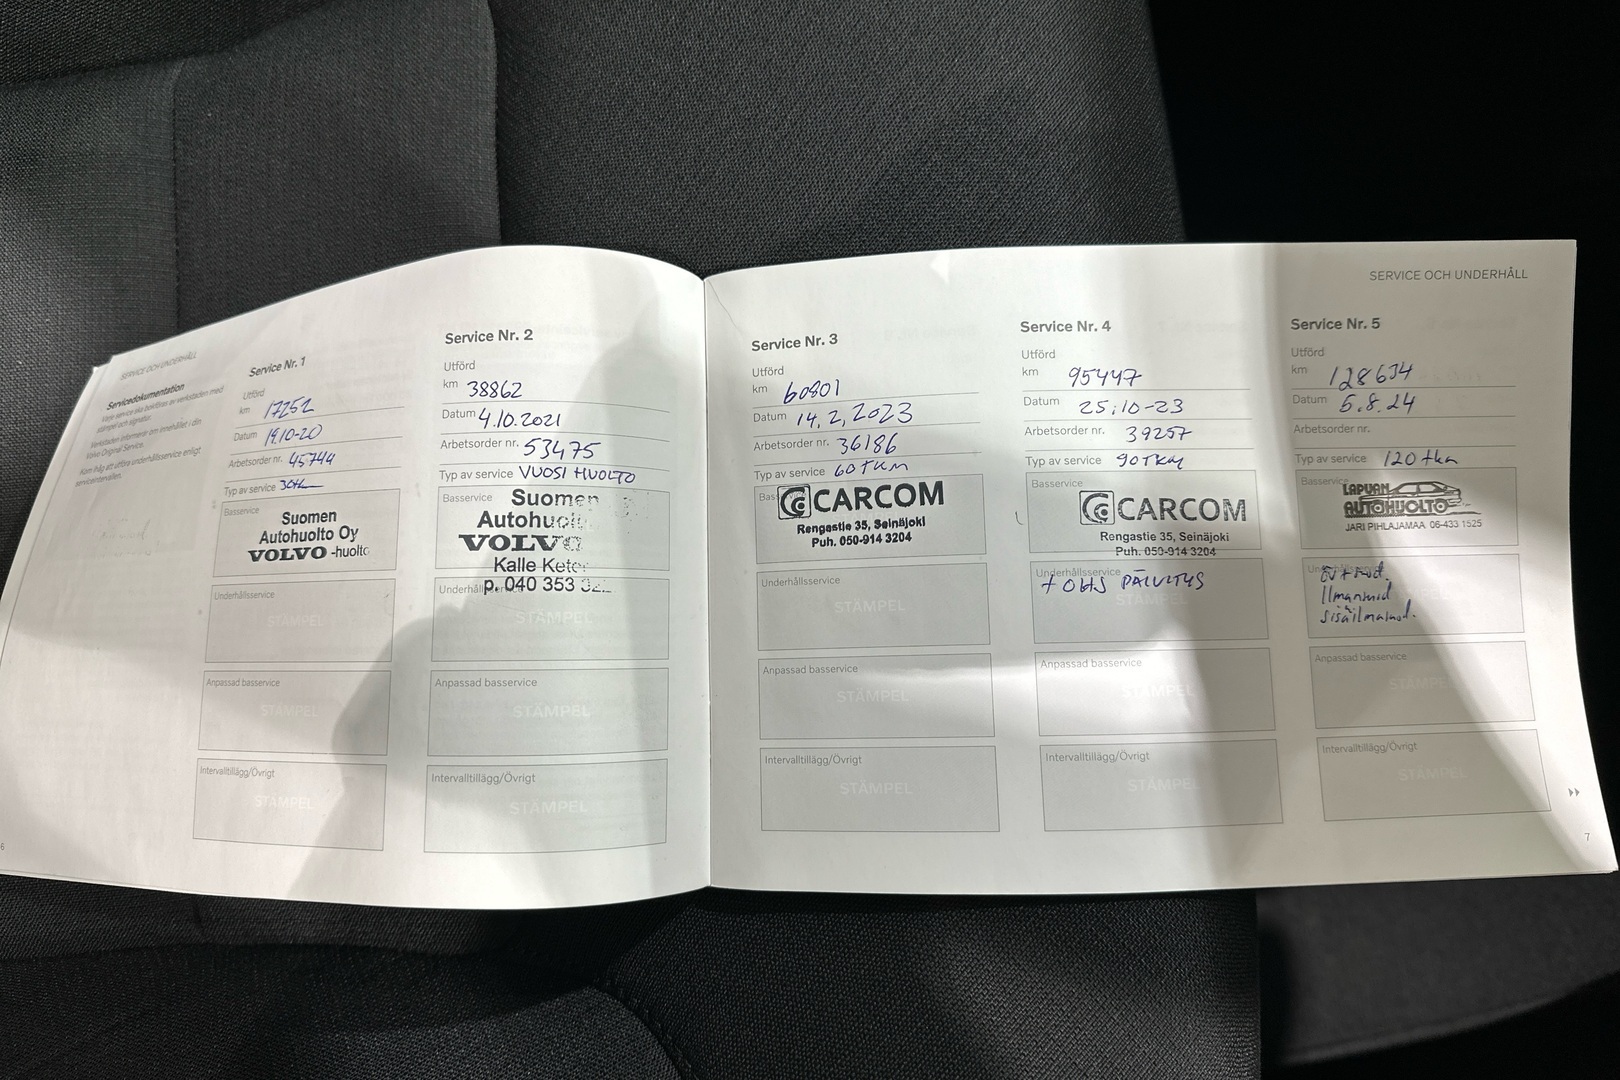 SERVICE OCH UNDERHÅLL
Servicedokumentation
Varje service ska bekräftas av verkstaden med
stämpel och signatur.
Verkstaden informerar om innehållet i din
Volvo Original Service.
Kom ihåg att utföra underhållsservice enligt
serviceintervallen.
Service Nr. 1
Utförd
km 17252
Datum 19.10-20
Arbetsorder nr. 45744
Typ av service
Basservice
Suomen
Autohuolto Oy
VOLVO -huolto
Underhållsservice
STÄMPEL
Anpassad basservice
STÄMPEL
Intervalltillägg/Övrigt
STÄMPEL
6
Service Nr. 2
Utförd
km 38862
Datum 4.10.2021
Arbetsorder nr. 53475
Typ av service VUOSI HUOLTO
Basservice
Suomen
Autohuolto
VOLVO
Kalle
p. 040 353
Underhållsservice
STÄMPEL
Anpassad basservice
STÄMPEL
Intervalltillägg/Övrigt
STÄMPEL
SERVICE OCH UNDERHÅLL
Service Nr. 3
Utförd
km 60801
Datum 14.2.2023
Arbetsorder nr. 36186
Typ av service 60TKM
CARCOM
Rengastie 35, Seinäjoki
Puh. 050-914 3204
Underhållsservice
STÄMPEL
Anpassad basservice
STÄMPEL
Intervalltillägg/Övrigt
STÄMPEL
Service Nr. 4
Utförd
km 95447
Datum 25.10-23
Arbetsorder nr. 39257
Typ av service 90TKM
Basservice
CARCOM
Rengastie 35, Seinäjoki
Puh. 050-914 3204
Underhållsservice
+ OHJS PÄIVITYS
Anpassad basservice
STÄMPEL
Intervalltillägg/Övrigt
STÄMPEL
Service Nr. 5
Utförd
km 128634
Datum 5.8.24
Arbetsorder nr.
Typ av service 120 tkm
Basservice
LAPUAN
AUTOHUOLTO
JARI PIHLAJAMAA 06-433 1525
Underhållsservice
Ilmansuod
sisäilmansuod.
Anpassad basservice
STÄMPEL
Intervalltillägg/Övrigt
STÄMPEL
7